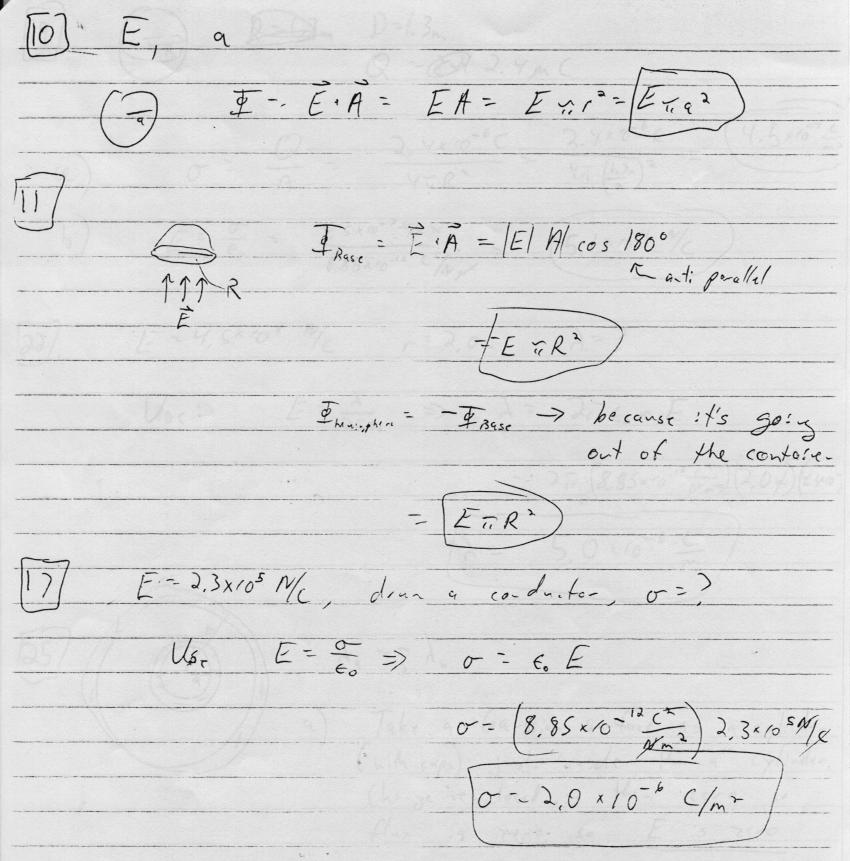 10 E, a
a Φ = E⃗ · A⃗ = EA = E π r² = E π a²
11
Φ_Base = E⃗ · A⃗ = |E| A| cos 180°
↖ anti parallel
R
E⃗
= -E π R²
Φ_hemisphere = -Φ_Base → because it's going
out of the container
= E π R²
17 E = 2.3×10⁵ N/C, a conductor, σ = ?
Use E = σ/ε₀ ⇒ σ = ε₀ E
σ = (8.85 × 10⁻¹² C²/Nm²) 2.3×10⁵ N/C
σ = 2.0 × 10⁻⁶ C/m²